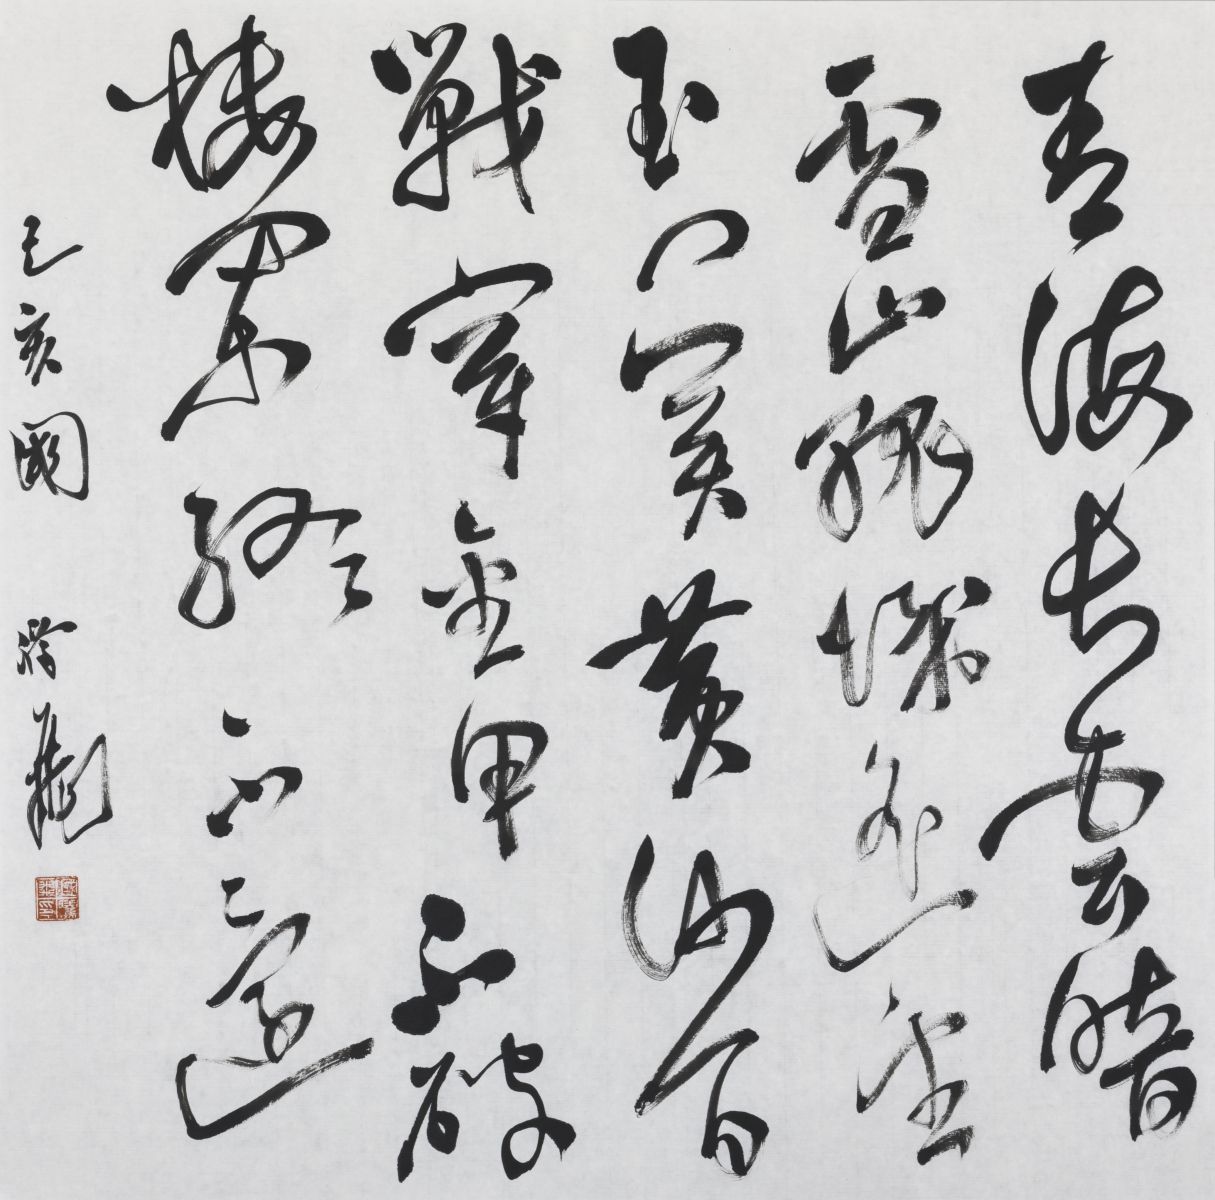 青海長雲暗
雪山孤城遙望
玉門關黃沙百
戰穿金甲不破
樓蘭終不還
己亥國